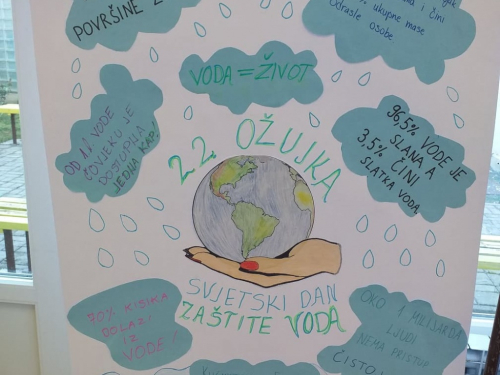 POVRŠINE Z
i čini
ukupne mase
odrasle osobe
VODA = ŽIVOT
OD 1L VODE
ČOVJEKU JE
DOSTUPNA
JEDNA KAP!
96,5% VODE JE
SLANA A
3,5% ČINI
SLATKA VODA
22. OŽUJKA
SVJETSKI DAN
ZAŠTITE VODA
70% KISIKA
DOLAZI
IZ
VODE!
OKO 1 MILIJARDA
LJUDI
NEMA PRISTUP
ČISTOJ